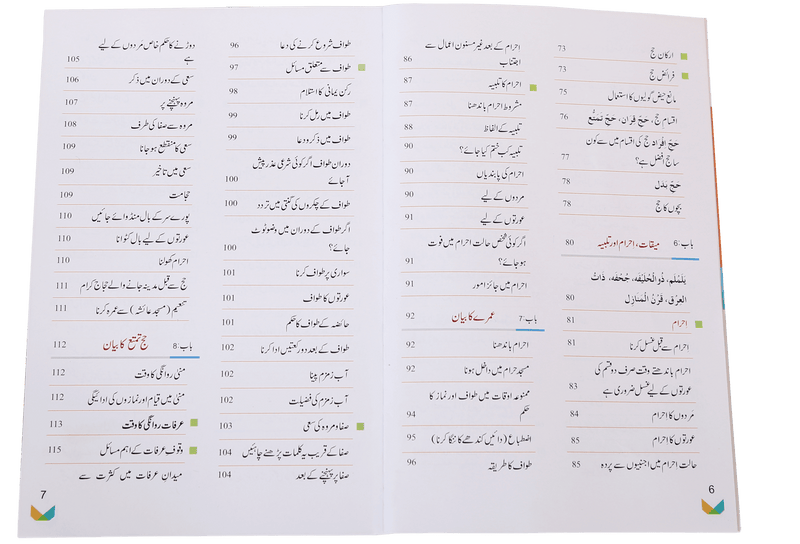 ارکان حج 73
فرائض حج 73
مانع حیض گولیوں کا استعمال 75
اقسام حج، حَجِّ قِرَان، حَجِّ تمتُّع 76
حَجِّ افْرِاد حج کی اقسام میں سے کون
سا حج افضل ہے؟ 77
حَجِّ بَدَل 78
بچوں کا حج 78
باب:6 میقات، احرام اور تلبیہ 80
یَلَمْلَم، ذُوالْحُلَیْفَہ، جُحْفَہ، ذَاتُ
الْعِرْق، قَرْنُ الْمَنَازِل 80
احرام 81
احرام سے قبل غسل کرنا 81
احرام باندھتے وقت صرف دو قسم کی
عورتوں کے لیے غسل ضروری ہے 83
مَردوں کا احرام 84
عورتوں کا احرام 85
حالت احرام میں اجنبیوں سے پردہ 85
6
احرام کے بعد غیر مسنون اعمال سے
اجتناب 86
احرام کا تلبیہ 87
مشروط احرام باندھنا 87
تلبیہ کے الفاظ 88
تلبیہ کب ختم کیا جائے؟ 90
احرام کی پابندیاں 90
مردوں کے لیے 90
عورتوں کے لیے 91
اگر کوئی شخص حالت احرام میں فوت
ہو جائے؟ 91
احرام میں جائز امور 91
باب:7 عمرے کا بیان 92
احرام باندھنا 92
مسجد حرام میں داخل ہونا 92
ممنوعہ اوقات میں طواف اور نماز کا
حکم 94
اضطباع (دائیں کندھے کا ننگا کرنا) 95
طواف کا طریقہ 96
طواف شروع کرنے کی دعا 96
طواف سے متعلق مسائل 97
رکن یمانی کا استلام 98
طواف میں رمل کرنا 99
طواف میں ذکر و دعا 99
دوران طواف اگر کوئی شرعی عذر پیش
آجائے 100
طواف کے چکروں کی گنتی میں تردد 100
اگر طواف کے دوران میں وضو ٹوٹ
جائے؟ 100
سواری پر طواف کرنا 101
عورتوں کا طواف 101
حائضہ کے طواف کا حکم 101
طواف کے بعد دو رکعتیں ادا کرنا 102
آب زمزم پینا 102
آب زمزم کی فضیلت 102
صفا و مروہ کی سعی 103
صفا کے قریب یہ کلمات پڑھنے چاہئیں 104
صفا پر پہنچنے کے بعد 104
دوڑنے کا حکم خاص مَردوں کے لیے
ہے 105
سعی کے دوران میں ذکر 106
مروہ پہنچنے پر 107
مروہ سے صفا کی طرف 108
سعی کا منقطع ہو جانا 109
سعی میں تاخیر 109
حجامت 109
پورے سر کے بال منڈوائے جائیں 110
عورتوں کے لیے بال کٹوانا 110
احرام کھولنا 110
حج سے قبل مدینہ جانے والے حجاج کرام 111
تنعیم (مسجد عائشہ) سے عمرہ کرنا 111
باب:8 حج تمتع کا بیان 112
منیٰ روانگی کا وقت 112
منیٰ میں قیام اور نمازوں کی ادائیگی 112
عرفات روانگی کا وقت 113
وقوف عرفات کے اہم مسائل 115
میدان عرفات میں کثرت سے
7